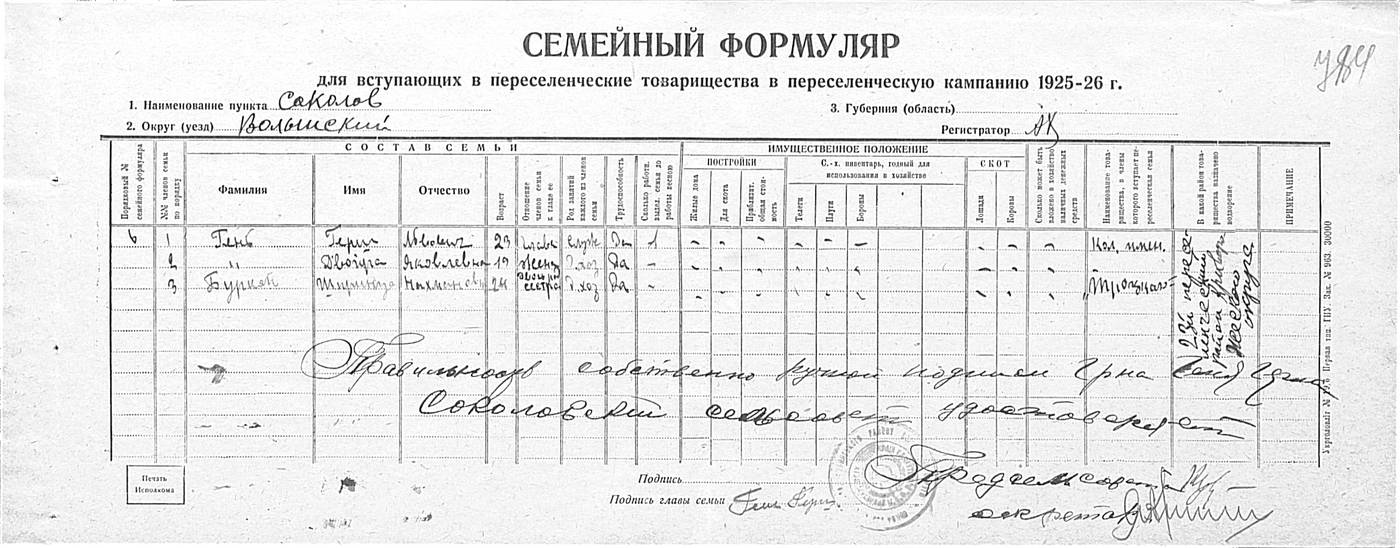 СЕМЕЙНЫЙ ФОРМУЛЯР
для вступающих в переселенческие товарищества в переселенческую кампанию 1925-26 г.
1. Наименование пункта Соколов
3. Губерния (область)
2. Округ (уезд) Волынский
Регистратор
СОСТАВ СЕМЬИ
ИМУЩЕСТВЕННОЕ ПОЛОЖЕНИЕ
Порядковый № семейного формуляра
№№ членов семьи по порядку
Фамилия
Имя
Отчество
Возраст
Отношение членов семьи к главе ее
Род занятий каждого из членов семьи
Трудоспособность
Сколько работн. выдел. семья до работы весною
ПОСТРОЙКИ
Жилые дома
Для скота
Приблизит. общая стоимость
С.-х. инвентарь, годный для использования в хозяйстве
Телеги
Плуги
Бороны
СКОТ
Лошади
Коровы
Сколько может быть вложено в хозяйство наличных денежных средств
Наименование товарищества, в члены которого вступает переселенческая семья
В какой район товарищества назначено водворение
ПРИМЕЧАНИЕ
6 1 Генб Герш Львович 23 глава служ Да 1 - - - - - - - - - Кол. имен.
2 " Двойра Яковлевна 19 жена д.хоз Да - - - - - - - - - -
3 Нахмановна 24 сестра д.хоз Да - - - - - - - - - - "Троцкаго"
Правильность собственно ручной подписи
Соколовский сельсовет удостоверяет
Печать Исполкома
Подпись
Предсельсовета
Подпись главы семьи
секретарь
Зак. № 963. 30000